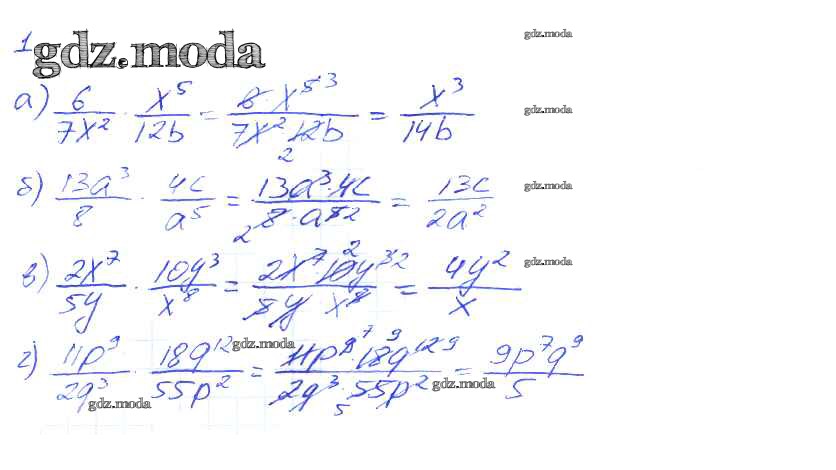 1
gdz.moda
gdz.moda
а) 6/7x² · x⁵/12b = 6·x⁵ ³/7x² 12b 2 = x³/14b
gdz.moda
б) 13a³/8 · 4c/a⁵ = 13a³·4c/8·a⁵ 2 2 = 13c/2a²
gdz.moda
в) 2x⁷/5y · 10y³/x⁸ = 2x⁷·10y³ 2 2/5y x⁸ = 4y²/x
gdz.moda
г) 11p⁹/2q³ · 18q¹²/55p² = 11p⁹ ⁷·18q¹² 9 ⁹/2q³·55p² 5 = 9p⁷q⁹/5
gdz.moda
gdz.moda
gdz.moda